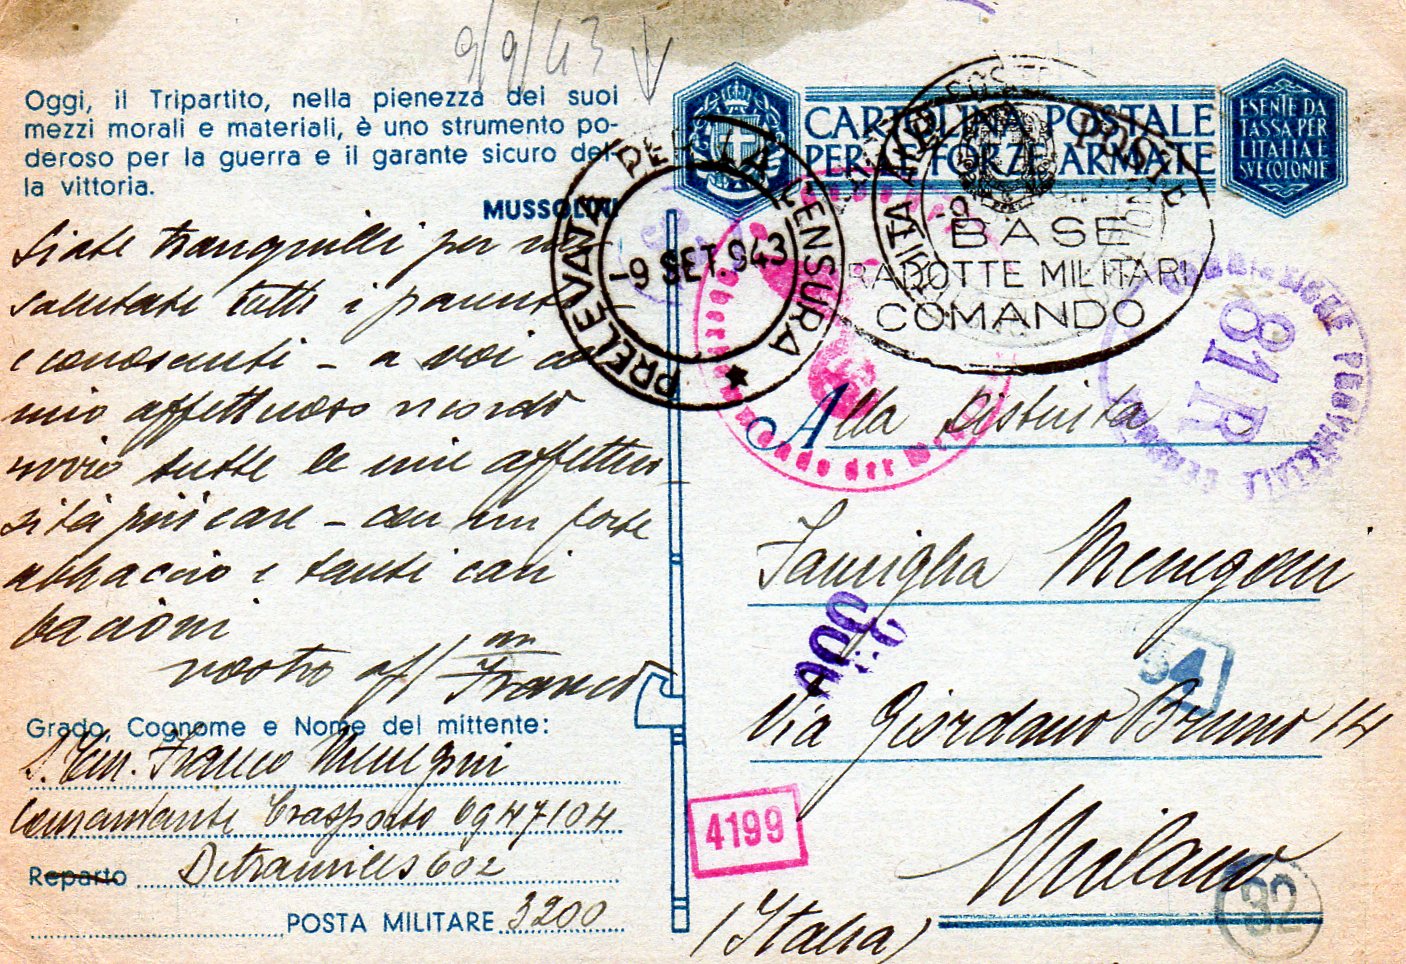 9/9/43
Oggi, il Tripartito, nella pienezza dei suoi
mezzi morali e materiali, è uno strumento po-
deroso per la guerra e il garante sicuro del-
la vittoria.
MUSSOLINI
Siate tranquilli per me
salutate tutti i parenti
e conoscenti - a voi co
mio affettuoso ricordo
invio tutte le mie affettuo
sità più care - con un forte
abbraccio e tanti cari
bacioni
vostro aff/mo
Franco
Grado, Cognome e Nome del mittente:
S. Ten. Franco Menegoni
Comandante Trasporto 6947104
Reparto
602
POSTA MILITARE 3200
PRELEVATA PER LA CENSURA
-9 SET. 943
CARTOLINA POSTALE
PER LE FORZE ARMATE
ESENTE DA
TASSA PER
L'ITALIA E
SVE COLONIE
BASE
TRADOTTE MILITARI
COMANDO
81 R
Alla Distinta
Famiglia Menegoni
Via Giordano Bruno 14
Milano
(Italia)
4199
32